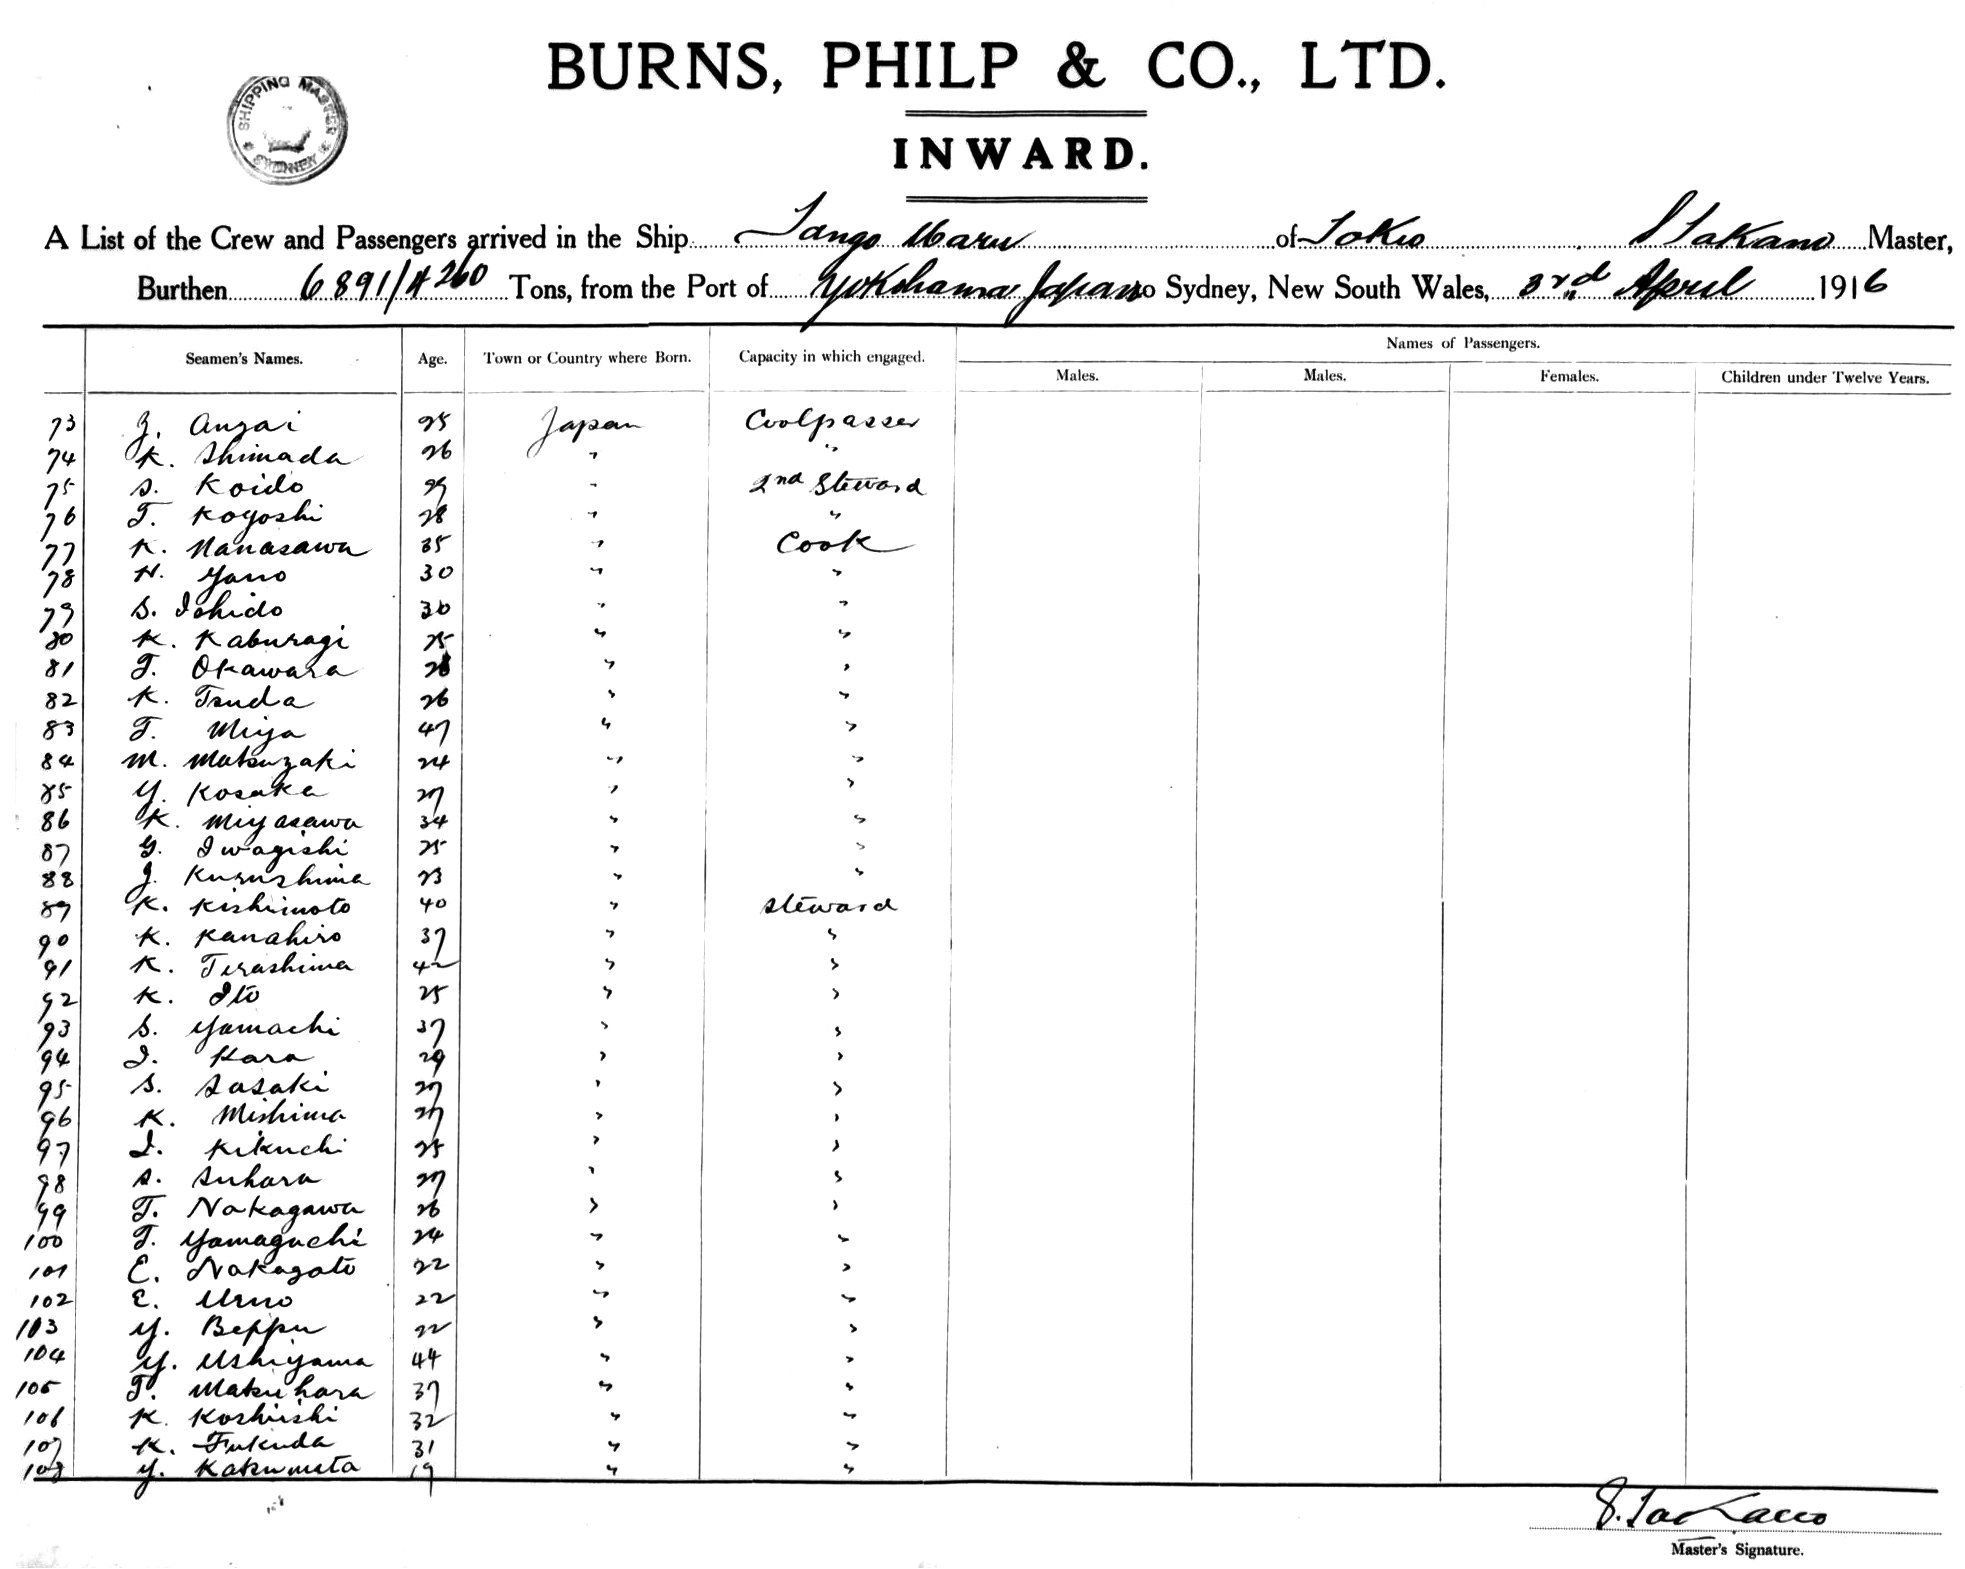 BURNS, PHILP & CO., LTD.
SHIPPING MASTER
SYDNEY
INWARD.
A List of the Crew and Passengers arrived in the Ship Tango Maru of Tokio S Takano Master,
Burthen 6891/4260 Tons, from the Port of Yokohama Japan to Sydney, New South Wales, 3rd April 1916
Seamen's Names. Age. Town or Country where Born. Capacity in which engaged. Names of Passengers.
Males. Males. Females. Children under Twelve Years.
73 Z. Anzai 25 Japan Coolpasser
74 K. Shimada 26 " "
75 S. Koido 29 " 2nd Steward
76 T. Koyoshi 28 " "
77 K. Nanasawa 35 " Cook
78 H. Yano 30 " "
79 S. Ishido 30 " "
80 K. Kaburagi 25 " "
81 T. Okawara 28 " "
82 K. Tsuda 26 " "
83 T. Miya 47 " "
84 M. Matsuzaki 24 " "
85 Y. Kosaka 27 " "
86 K. Miyasawa 34 " "
87 G. Iwagishi 25 " "
88 J. Kurushima 23 " "
89 K. Kishimoto 40 " Steward
90 K. Kanahiro 37 " "
91 K. Terashima 42 " "
92 K. Ito 25 " "
93 S. Yamachi 37 " "
94 I. Hara 29 " "
95 S. Sasaki 27 " "
96 K. Mishima 27 " "
97 I. Kikuchi 25 " "
98 S. Suhara 27 " "
99 T. Nakagawa 26 " "
100 T. Yamaguchi 24 " "
101 E. Nakagato 22 " "
102 E. Ueno 22 " "
103 Y. Beppu 22 " "
104 Y. Ushiyama 44 " "
105 T. Matsuhara 37 " "
106 K. Koshiishi 32 " "
107 K. Fukuda 31 " "
108 Y. Katsumata 19 " "
S. Takano
Master's Signature.